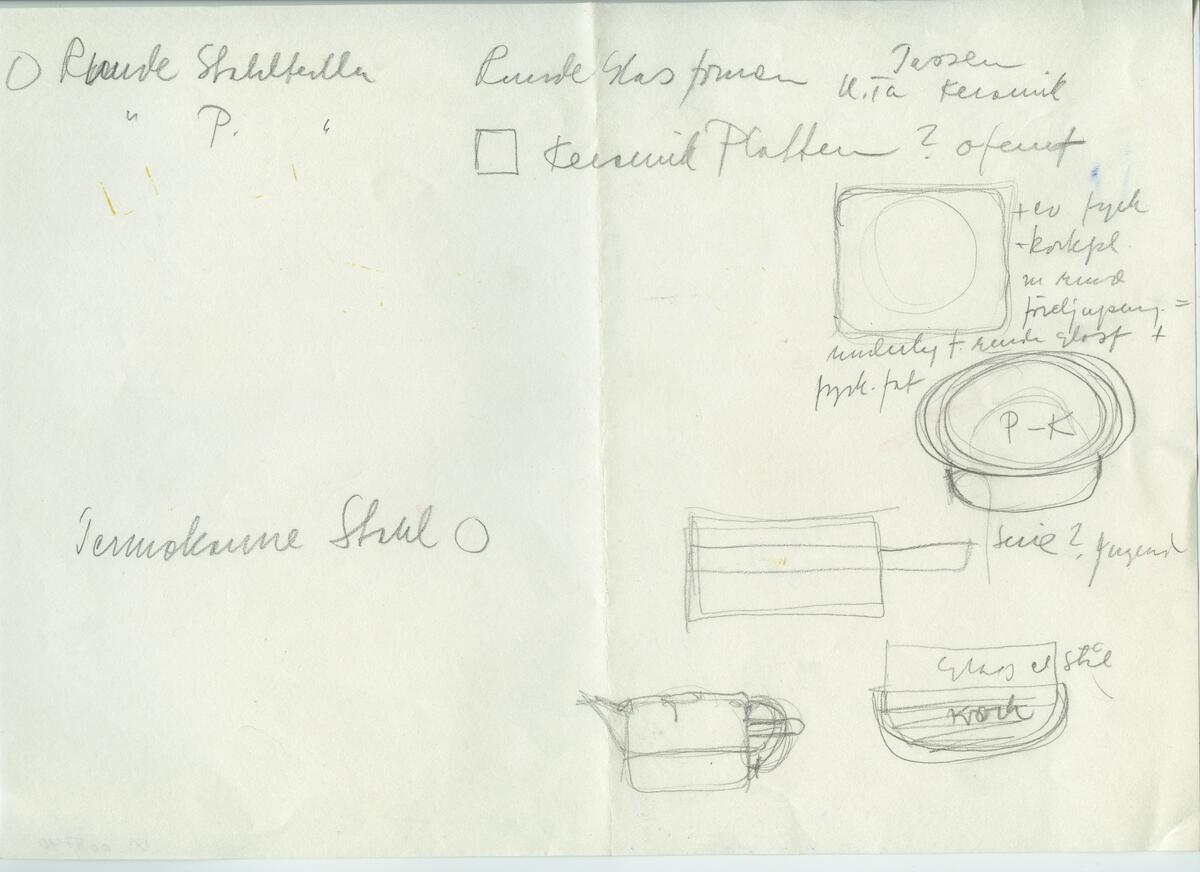 Runde Stahlteller
" P. "
Runde Glas formen
Tassen
U.Ta Keramik
Keramik Platten ? ofenf
+ ev tryck
- korkpl.
m rund
fördjupning =
underlag + runda glasf +
P-K
Termokanne Stahl
Serie ? Jugend
Glas el Stål
Kork